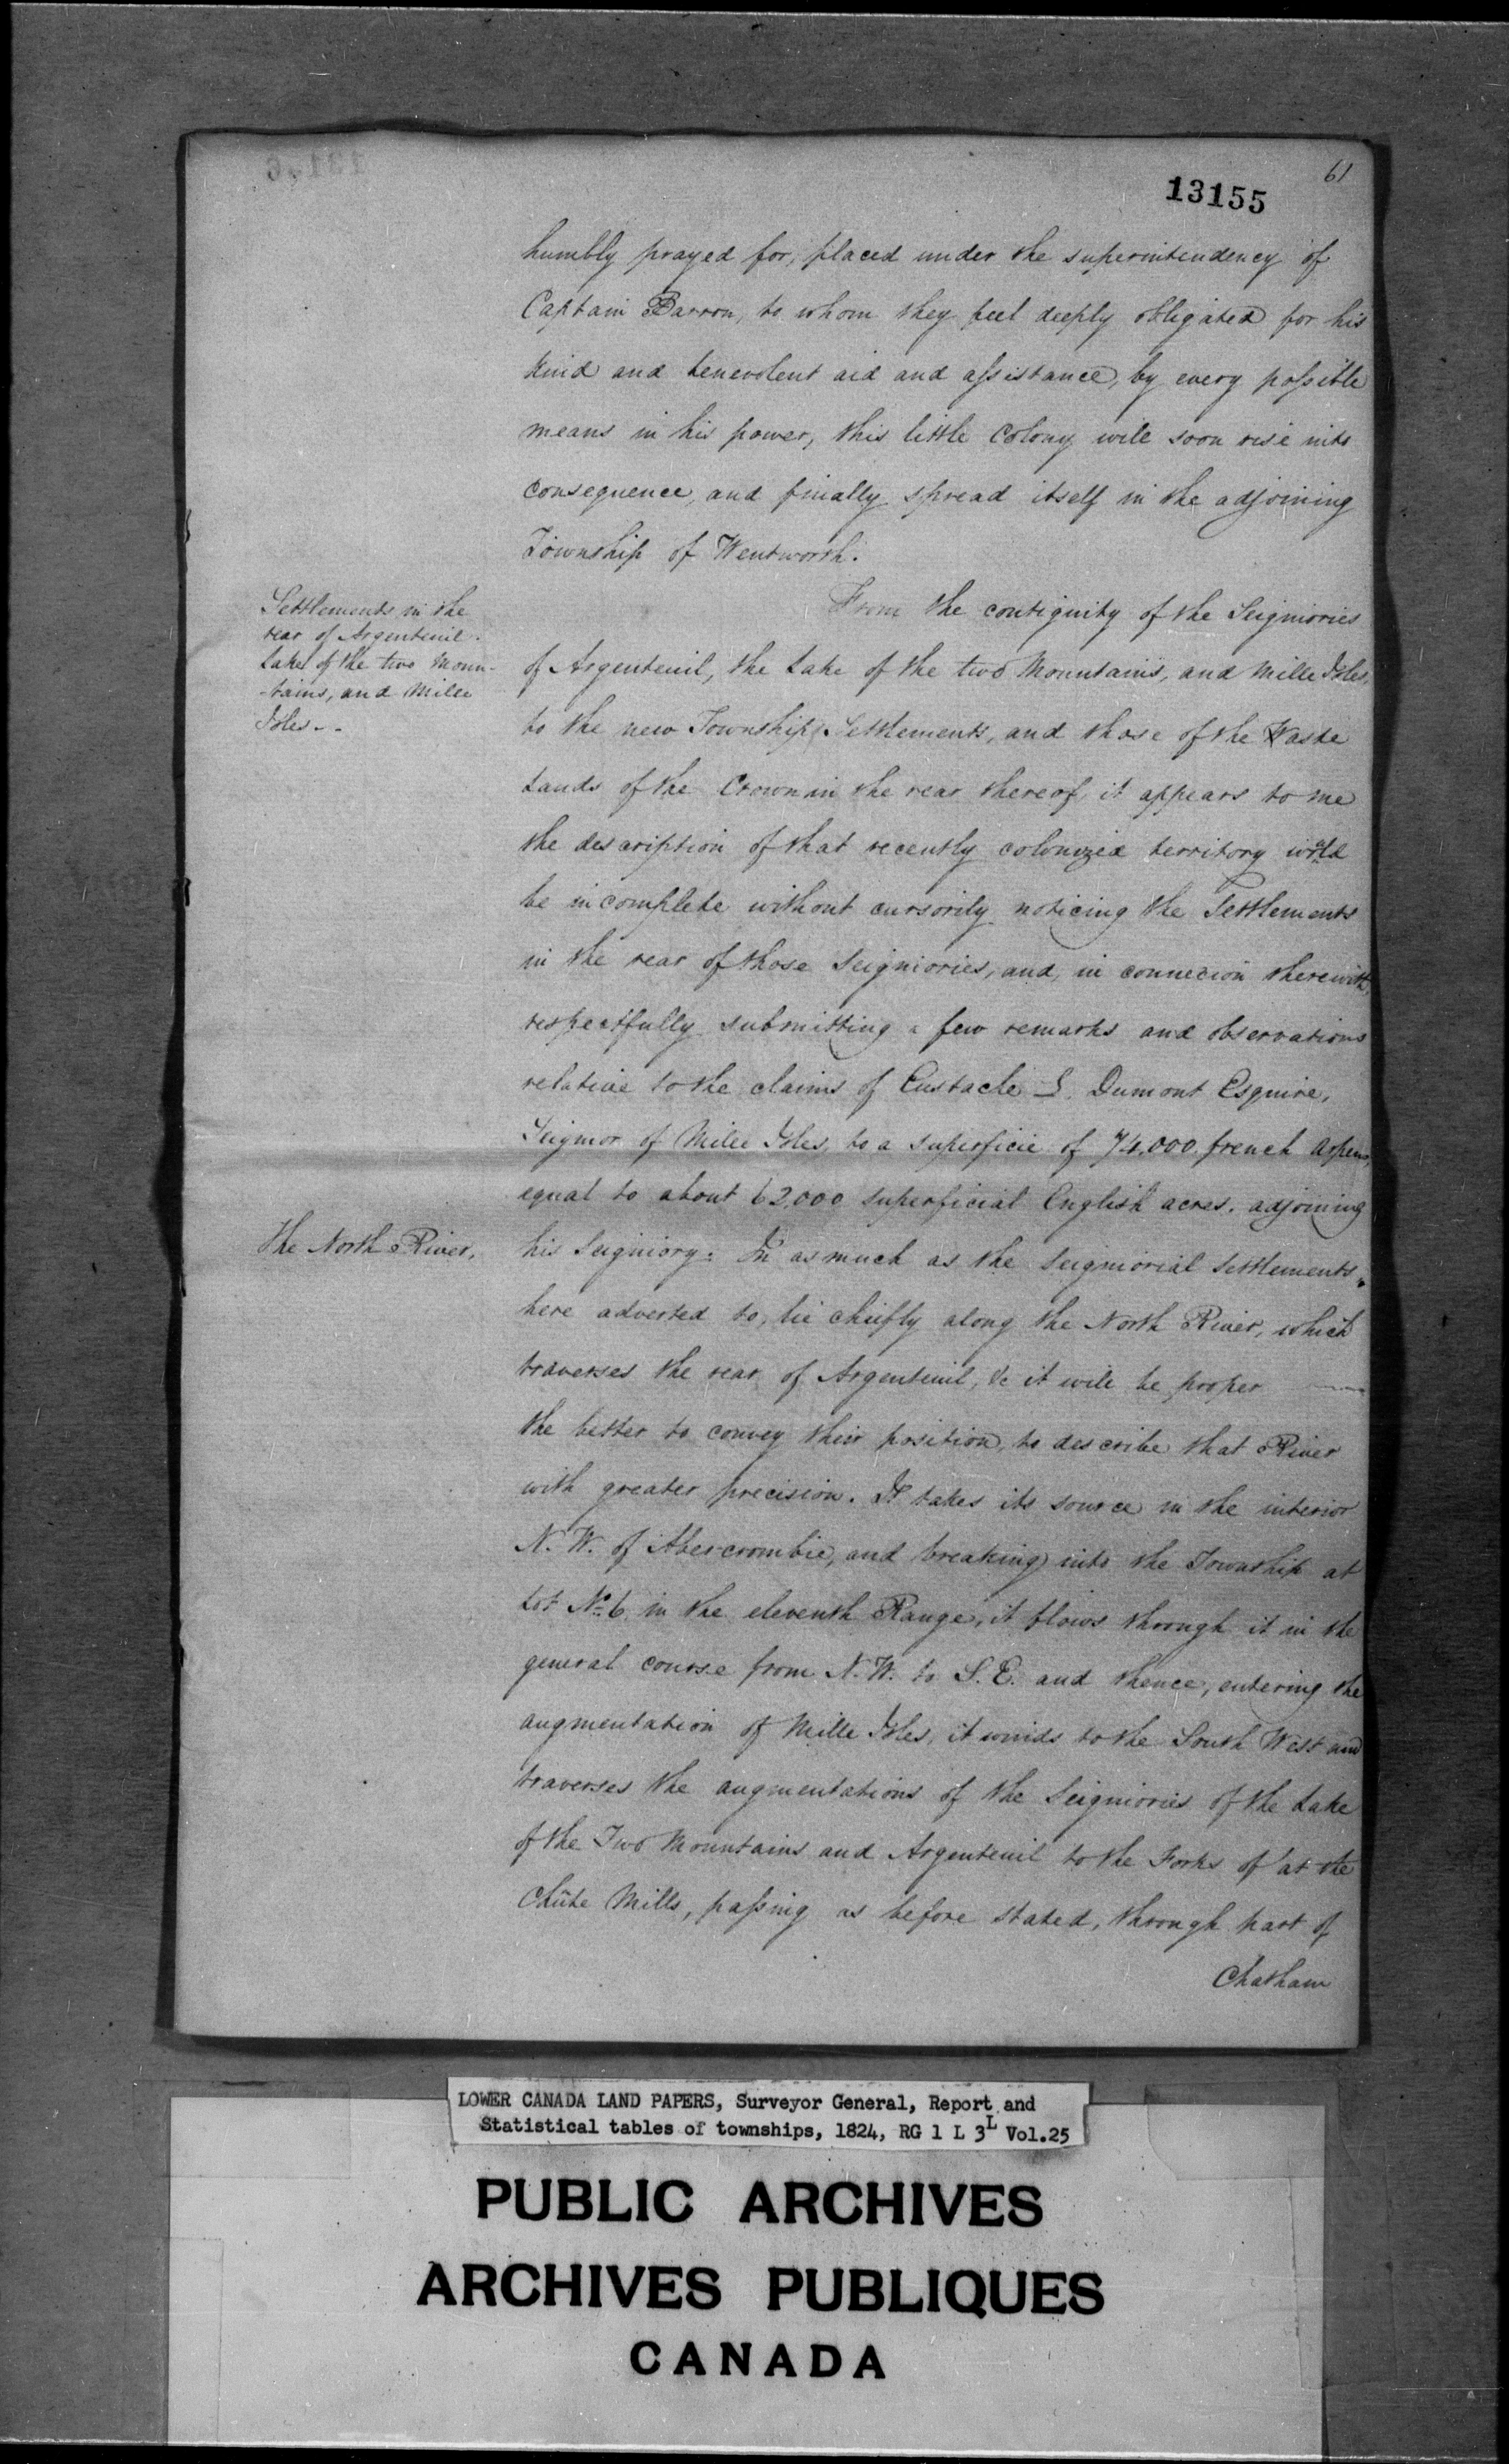 61
13155
humbly prayed for, placed under the superintendency of
Captain Barron, to whom they feel deeply obligated for his
kind and benevolent aid and assistance, by every possible
means in his power, this little Colony will soon rise into
consequence, and finally spread itself in the adjoining
Township of Wentworth.
Settlements in the
rear of Argenteuil.
Lake of the two Moun-
-tains, and Mille
Isles--
From the contiguity of the Seigniories
of Argenteuil, the Lake of the two Mountains, and Mille Isles,
to the new Township Settlements, and those of the Waste
Lands of the Crown in the rear thereof, it appears to me
the description of that recently colonized territory would
be incomplete without cursorily noticing the Settlements
in the rear of those Seigniories, and, in connexion therewith,
respectfully submitting a few remarks and observations
relative to the claims of Eustache L. Dumont Esquire,
Seignior of Mille Isles, to a superficie of 74,000 french Arpens,
equal to about 62,000 superficial English acres. adjoining
The North River.
his Seigniory. In as much as the Seigniorial Settlements,
here adverted to, lie chiefly along the North River, which
traverses the rear of Argenteuil, &c it will be proper
the better to convey their position, to describe that River
with greater precision. It takes its source in the interior
N. W. of Abercrombie, and breaking into the Township at
Lot No. 6 in the eleventh Range, it flows through it in the
general course from N. W. to S. E. and thence, entering the
augmentation of Mille Isles, it winds to the South West and
traverses the augmentations of the Seigniories of the Lake
of the Two Mountains and Argenteuil to the Forks of at the
Chûte Mills, passing as before stated, through part of
Chatham
LOWER CANADA LAND PAPERS, Surveyor General, Report and
Statistical tables of townships, 1824, RG 1 L 3L Vol.25
PUBLIC ARCHIVES
ARCHIVES PUBLIQUES
CANADA